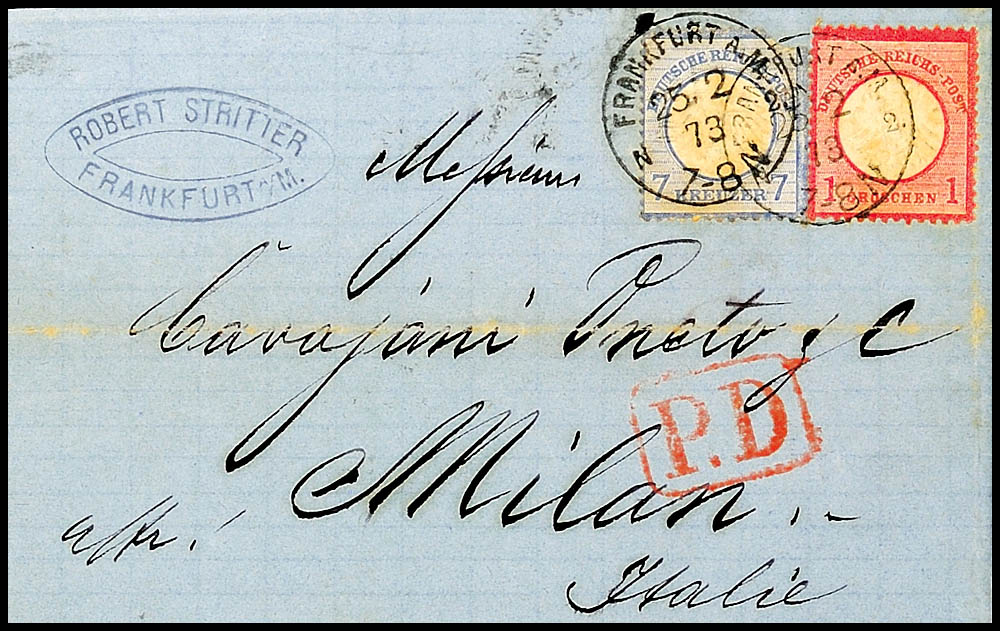 ROBERT STRITTER
FRANKFURT a/M.
FRANKFURT A.M.
25. 2
73
7-8 N
DEUTSCHE REICHS-POST
7 KREUZER 7
DEUTSCHE REICHS-POST
1 GROSCHEN 1
Messieurs
Cavajani Oneto & C
P.D
Milan.
Italie